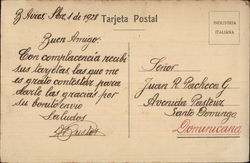 B Aires, Abre. 1 de 1928
Tarjeta Postal
INDUSTRIA
ITALIANA
Buen Amigo:
Con complacencia recibí
sus tarjetas, las que me
es grato contestar, para
darle las gracias por
su bonito envio
Saludos
Señor
Juan R. Pacheco G.
Avenida Pasteur
Santo Domingo
Dominicana